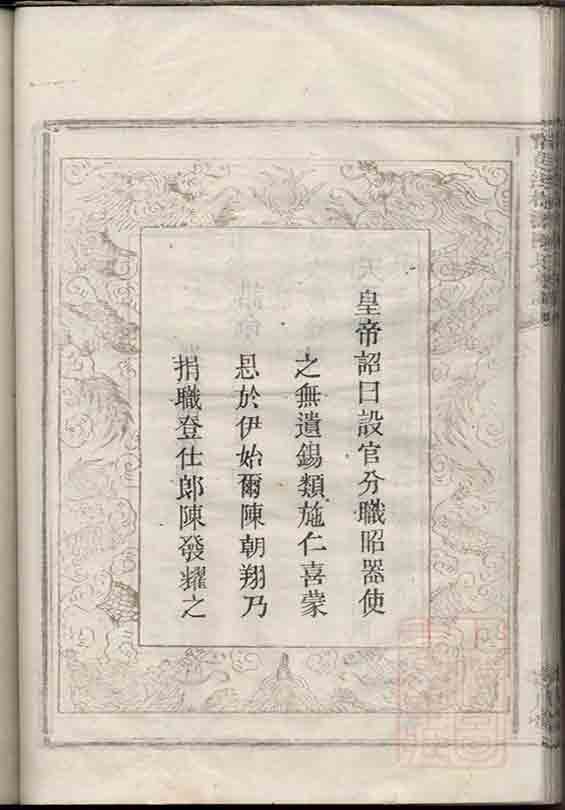 皇帝詔曰設官分職昭器使
之無遺錫類施仁喜蒙
恩於伊始爾陳朝翔乃
捐職登仕郎陳發耀之